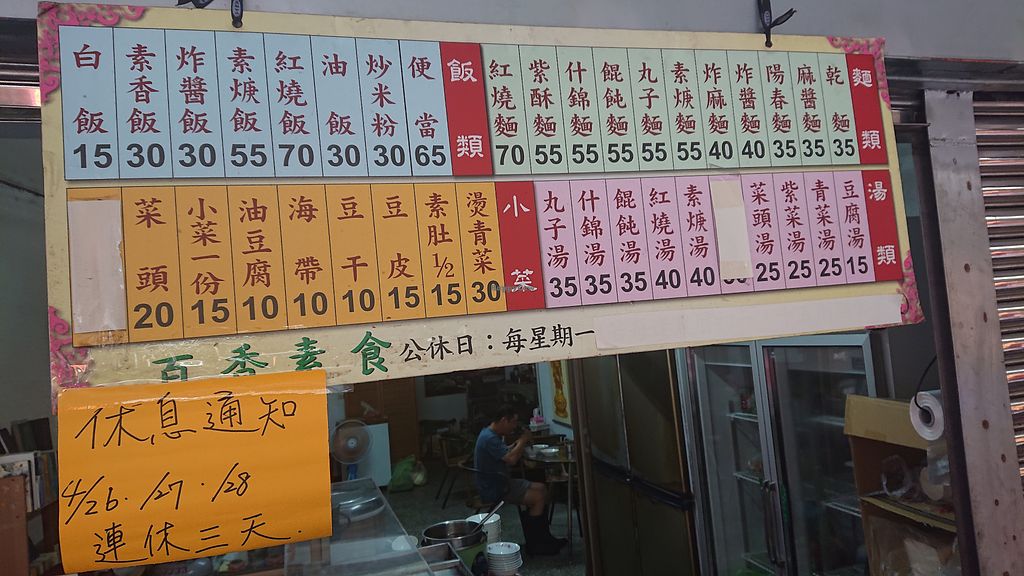 麵類
乾麵 35
麻醬麵 35
陽春麵 35
炸醬麵 40
炸麻麵 40
素焿麵 55
丸子麵 55
餛飩麵 55
什錦麵 55
紫酥麵 55
紅燒麵 70
飯類
便當 65
炒米粉 30
油飯 30
紅燒飯 70
素焿飯 55
炸醬飯 30
素香飯 30
白飯 15
湯類
豆腐湯 15
青菜湯 25
紫菜湯 25
菜頭湯 25
素焿湯 40
紅燒湯 40
餛飩湯 35
什錦湯 35
丸子湯 35
小菜
燙青菜 30
素肚1/2 15
豆皮 15
豆干 10
海帶 10
油豆腐 10
小菜一份 15
菜頭 20
百香素食 公休日：每星期一
休息通知
4/26．/27．/28
連休三天．